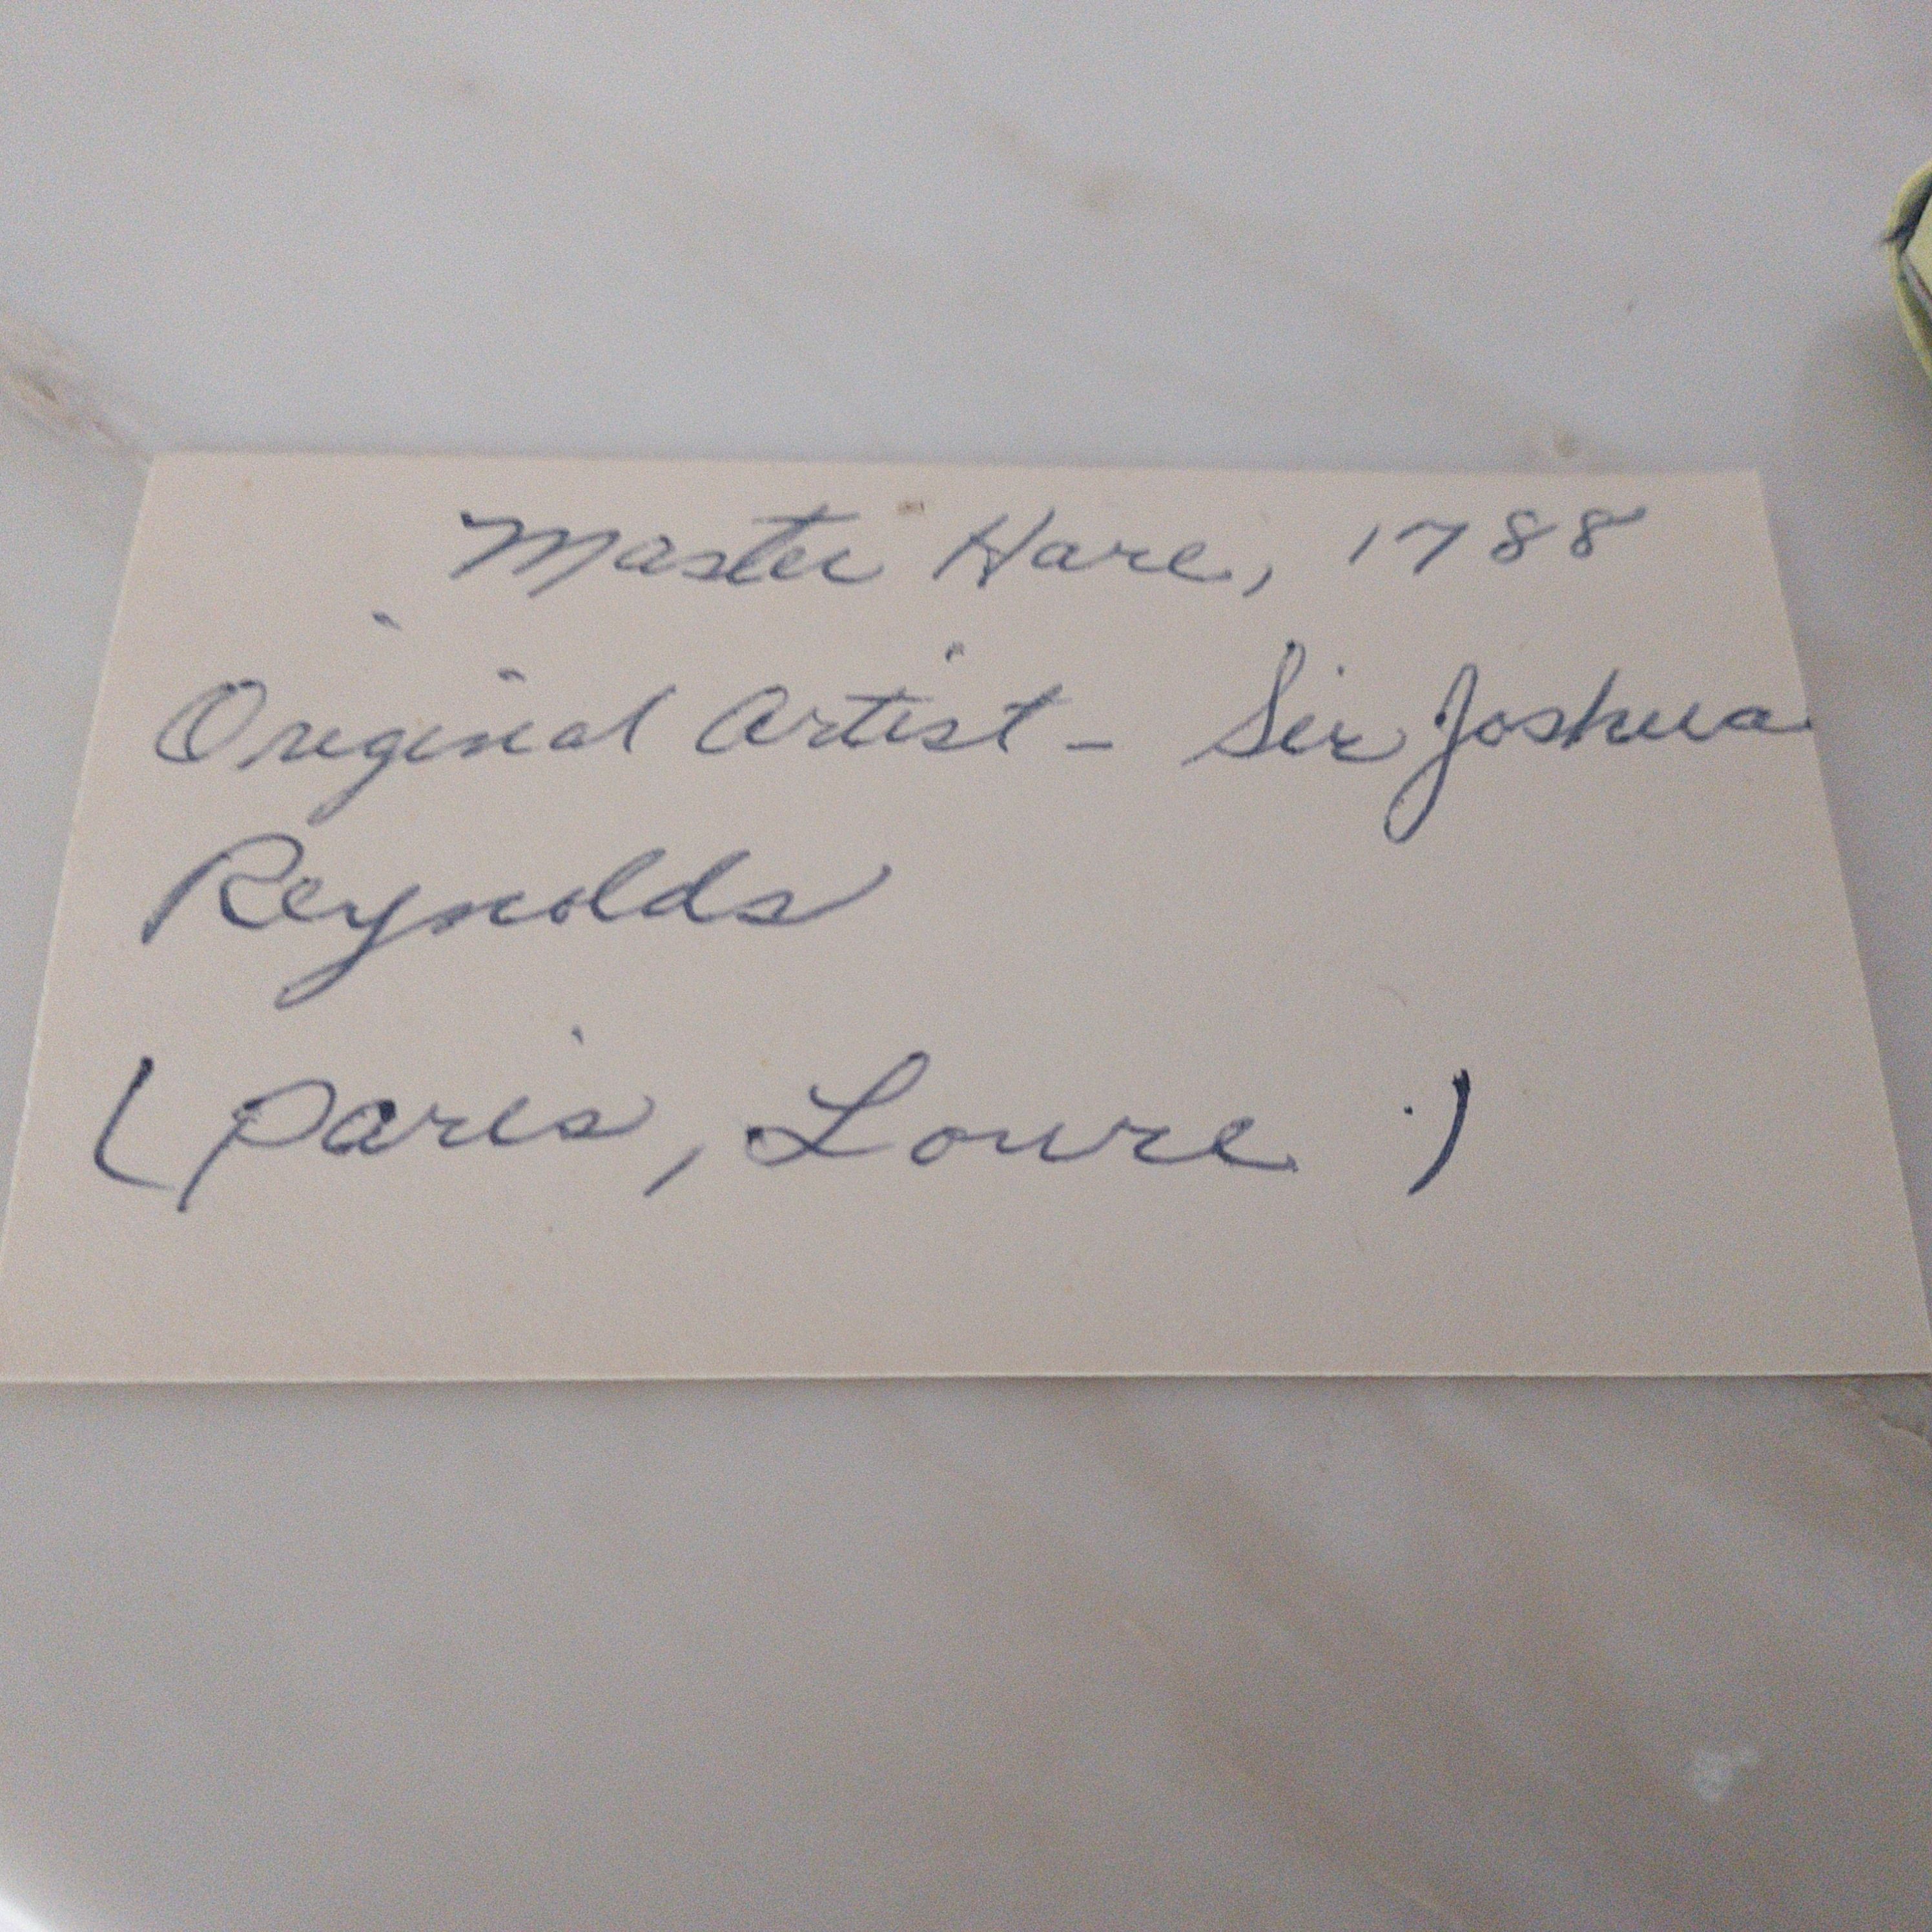 Master Hare, 1788
Original Artist - Sir Joshua
Reynolds
(Paris, Louvre)